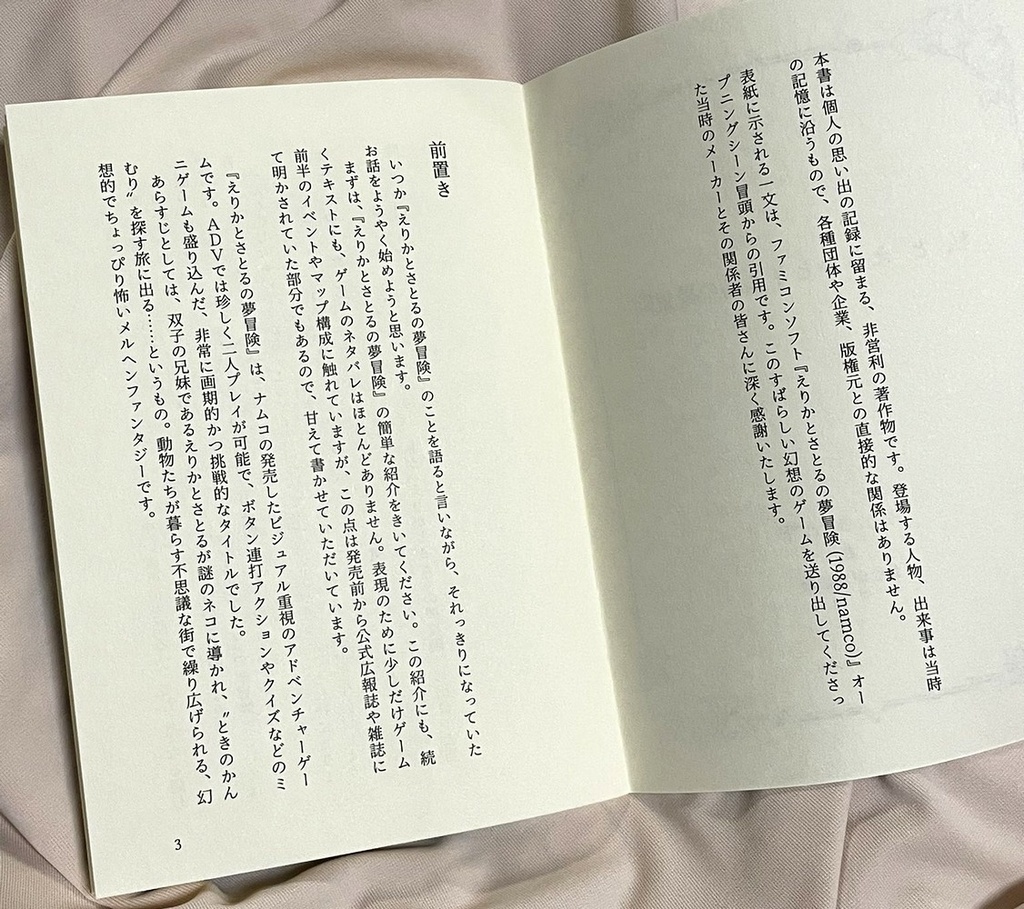 本書は個人の思い出の記録に留まる、非営利の著作物です。登場する人物、出来事は当時
の記憶に沿うもので、各種団体や企業、版権元との直接的な関係はありません。
表紙に示される一文は、ファミコンソフト『えりかとさとるの夢冒険(1988/namco)』オー
プニングシーン冒頭からの引用です。このすばらしい幻想のゲームを送り出してくださっ
た当時のメーカーとその関係者の皆さんに深く感謝いたします。
前置き
いつか『えりかとさとるの夢冒険』のことを語ると言いながら、それっきりになっていた
お話をようやく始めようと思います。
まずは、『えりかとさとるの夢冒険』の簡単な紹介をきいてください。この紹介にも、続
くテキストにも、ゲームのネタバレはほとんどありません。表現のために少しだけゲーム
前半のイベントやマップ構成に触れていますが、この点は発売前から公式広報誌や雑誌に
て明かされていた部分でもあるので、甘えて書かせていただいています。
『えりかとさとるの夢冒険』は、ナムコの発売したビジュアル重視のアドベンチャーゲー
ムです。ADVでは珍しく二人プレイが可能で、ボタン連打アクションやクイズなどのミ
ニゲームも盛り込んだ、非常に画期的かつ挑戦的なタイトルでした。
あらすじとしては、双子の兄妹であるえりかとさとるが謎のネコに導かれ、〝ときのかん
むり〟を探す旅に出る……というもの。動物たちが暮らす不思議な街で繰り広げられる、幻
想的でちょっぴり怖いメルヘンファンタジーです。
3